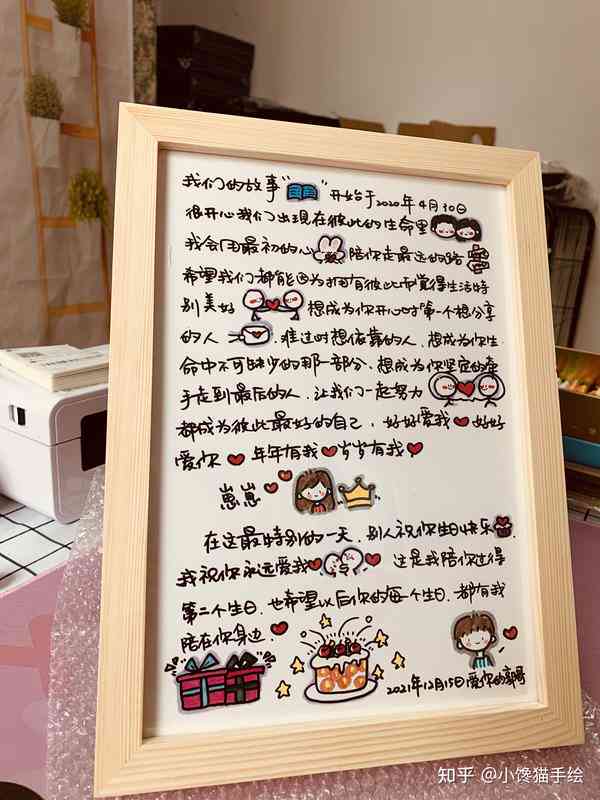 我们的故事“ ”开始于2020年4月10日
很开心我们出现在彼此的生命里
我会用最初的心 陪你走最远的路
希望我们都能因为拥有彼此而觉得生活特
别美好 想成为你开心时第一个想分享
的人 难过时想依靠的人，想成为你生
命中不可缺少的那一部分，想成为你坚定的牵
手走到最后的人，让我们一起努力
都成为彼此最好的自己，好好爱我 好好
爱你 年年有我 岁岁有我
崽崽
在这最特别的一天，别人祝你生日快乐
我祝你永远爱我 这是我陪你过得
第二个生日，也希望以后你的每一个生日，都有我
陪在你身边
2021年12月15日爱你的
知乎 @小馋猫手绘